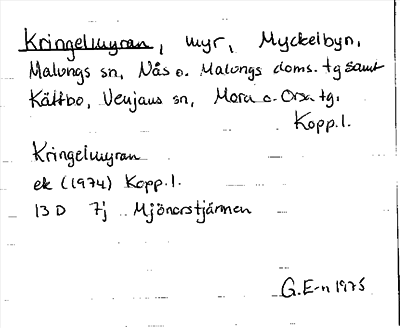 Kringelmyran, myr, Myckelbyn,
Malungs sn, Nås o. Malungs doms. tg samt
Kättbo, Venjans sn, Mora o. Orsa tg.
Kopp. l.
Kringelmyran
ek (1974) Kopp. l.
13 D 7j Mjönorstjärnen
G. E-n 1975